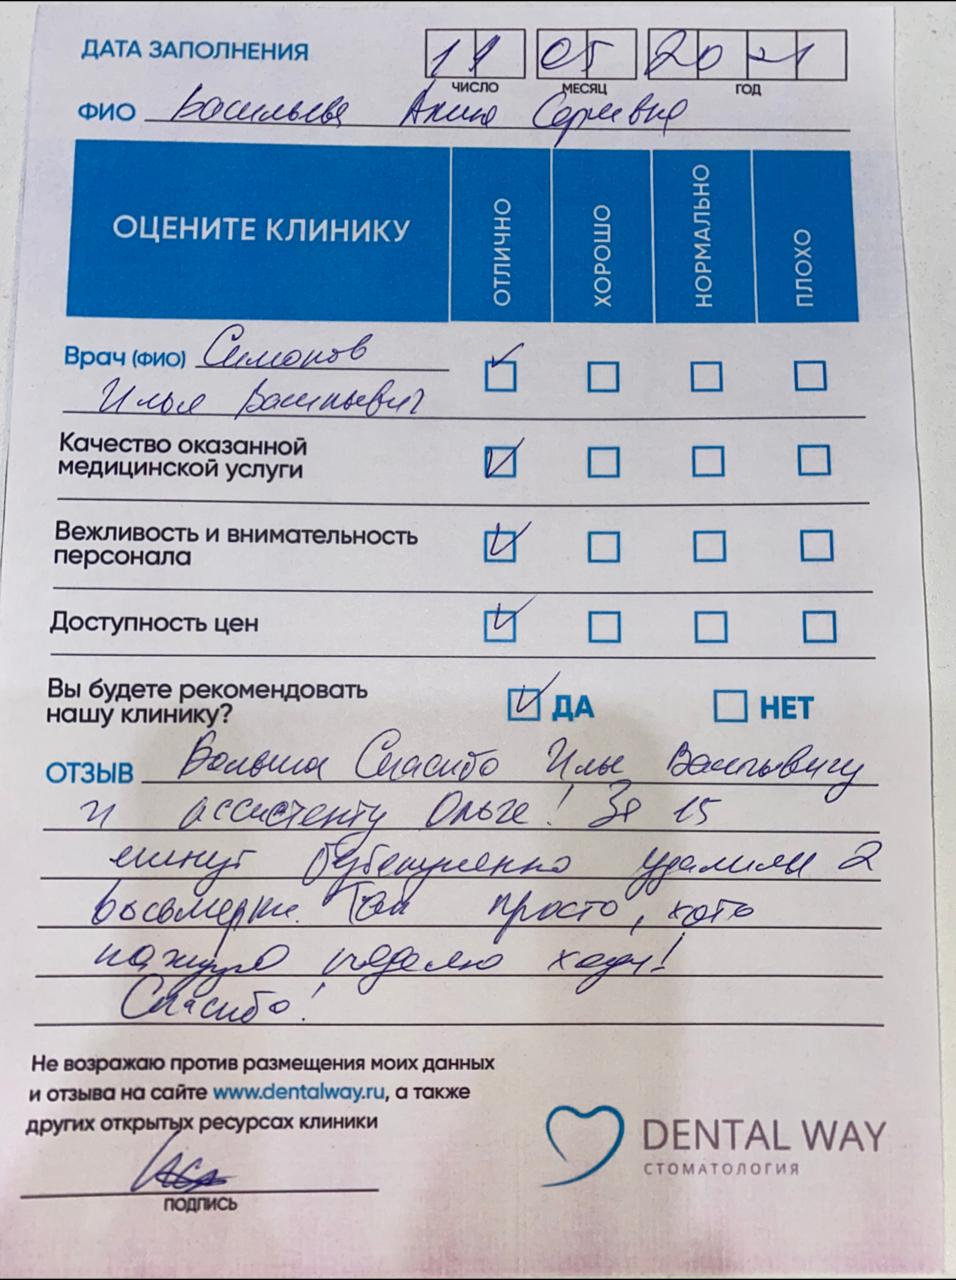 ДАТА ЗАПОЛНЕНИЯ 11 05 2021
ЧИСЛО МЕСЯЦ ГОД
ФИО Васильева Сергеевна
ОЦЕНИТЕ КЛИНИКУ ОТЛИЧНО ХОРОШО НОРМАЛЬНО ПЛОХО
Врач (ФИО) Симонов
Илья Васильевич
Качество оказанной
медицинской услуги
Вежливость и внимательность
персонала
Доступность цен
Вы будете рекомендовать
нашу клинику? ДА НЕТ
ОТЗЫВ Спасибо Илье Васильевичу
и ассистенту Ольге! За 15
минут удалили 2
восьмерки. Так просто, хоть
каждую неделю ходи!
Спасибо!
Не возражаю против размещения моих данных
и отзыва на сайте www.dentalway.ru, а также
других открытых ресурсах клиники
ПОДПИСЬ
DENTAL WAY
СТОМАТОЛОГИЯ